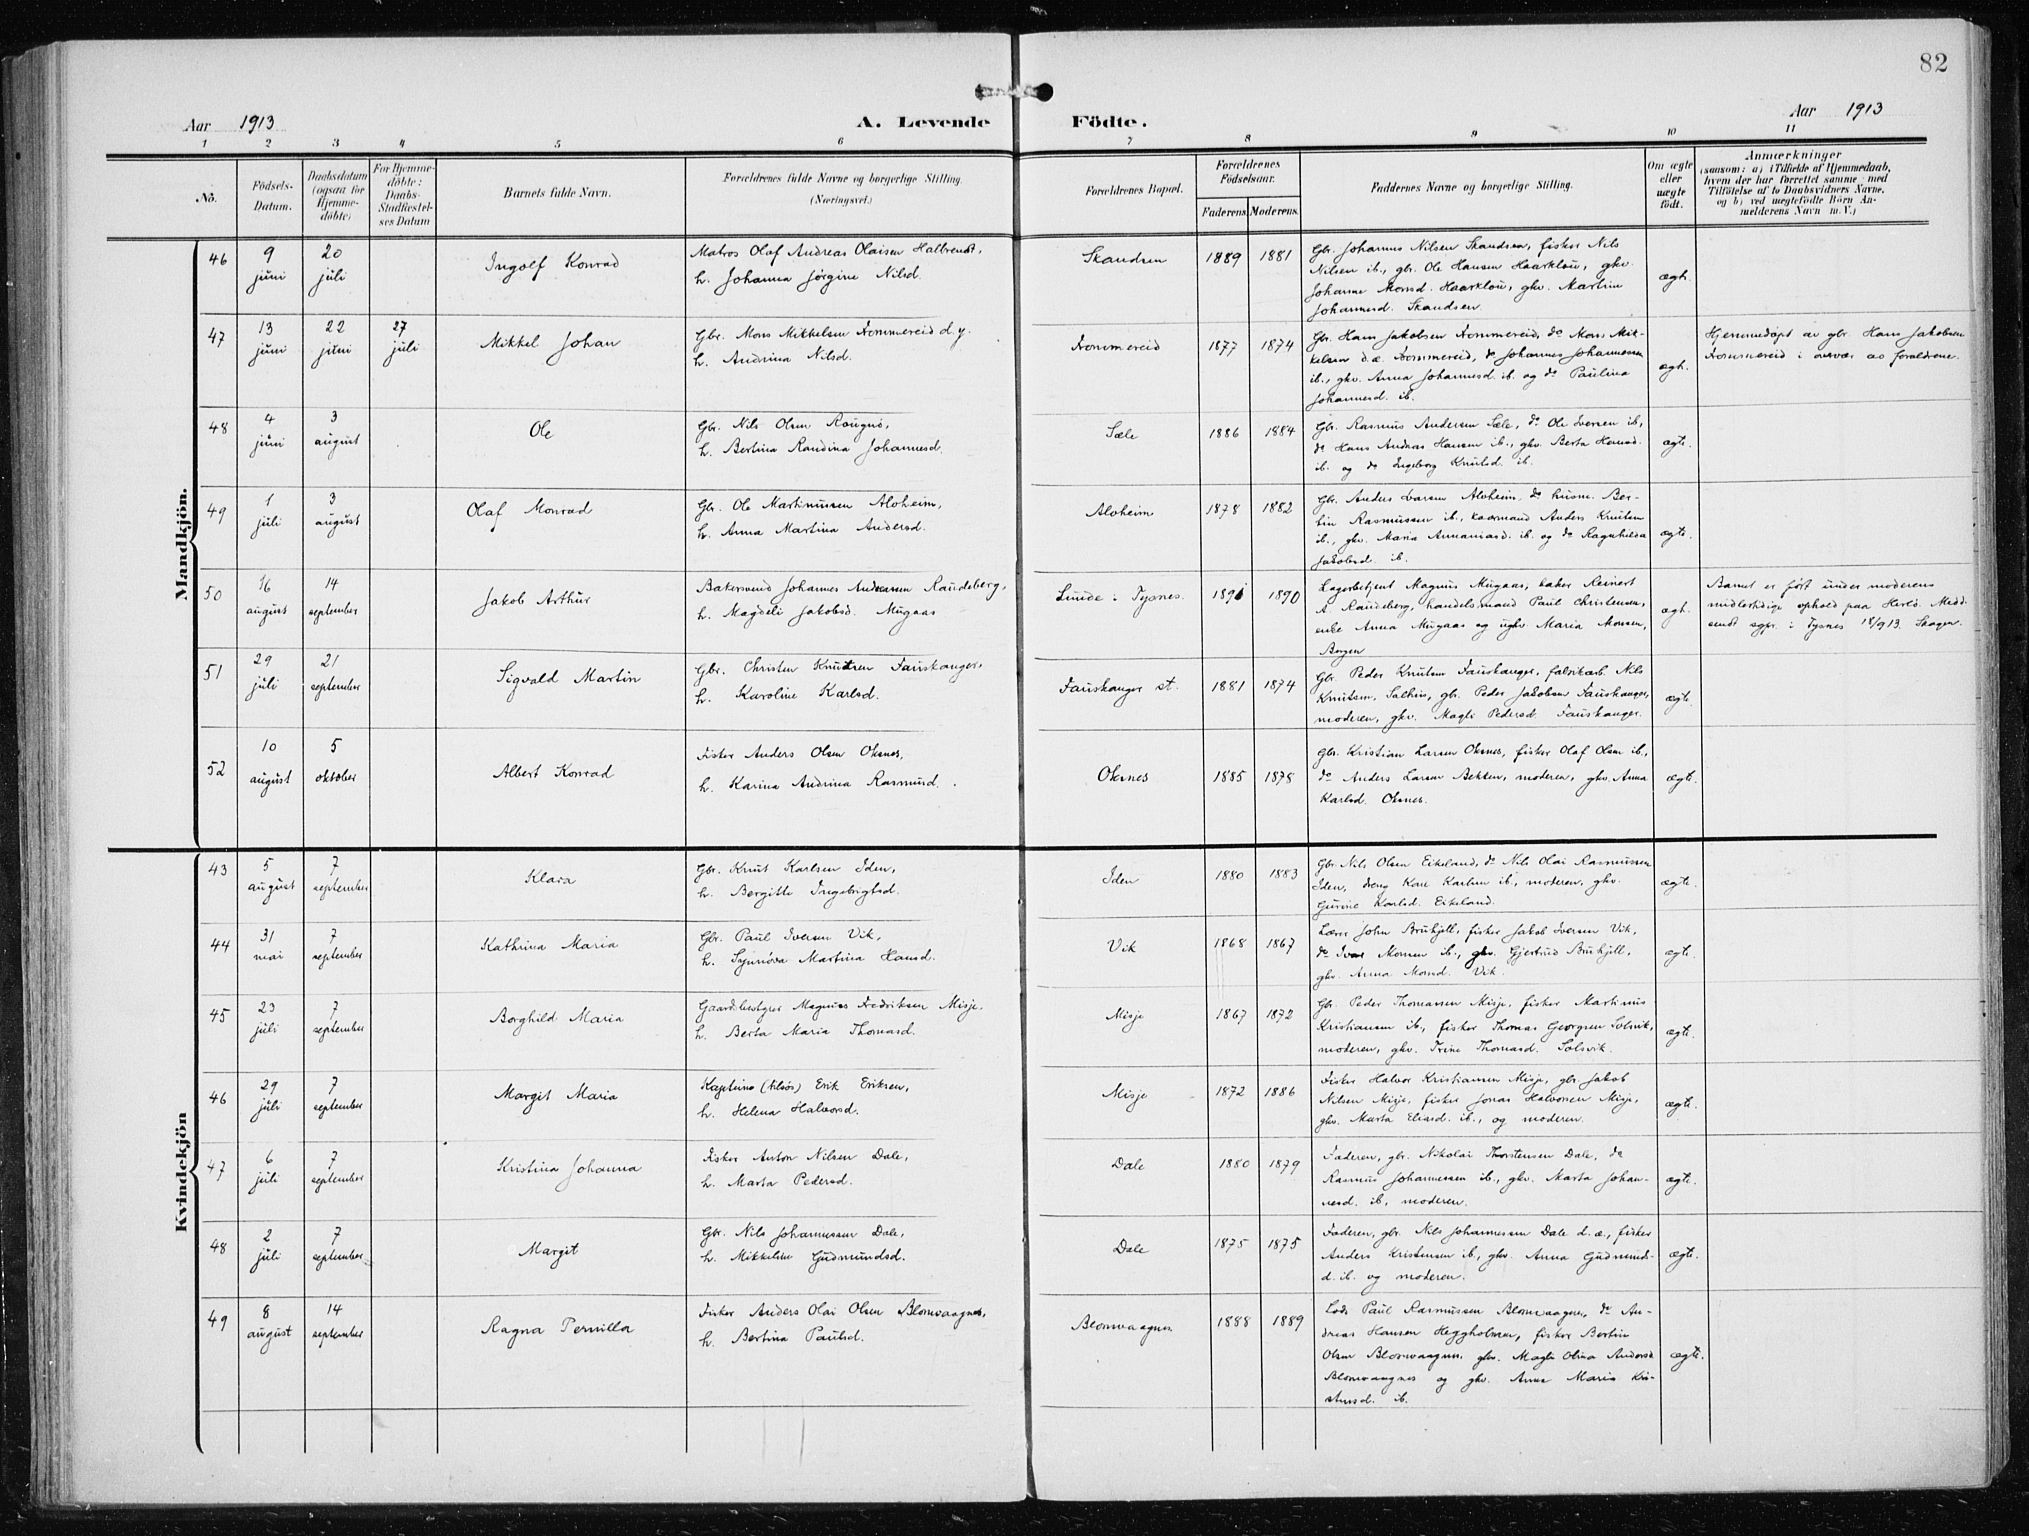 82
Aar 1913
A. Levende Födte.
Aar 1913
1 2 3 4 5 6 7 8 9 10 11
No.
Födsels-
Datum.
Daabsdatum
(ogsaa for
Hjemme-
döbte)
For Hjemme-
döbte:
Daabs-
Stadfæstel-
ses Datum
Barnets fulde Navn.
Forældrenes fulde Navne og borgerlige Stilling.
(Næringsvei.)
Forældrenes Bopæl.
Forældrenes
Födselsaar.
Faderens. Moderens.
Faddernes Navne og borgerlige Stilling.
Om ægte
eller
uægte
födt.
Anmærkninger
(saasom: a) i Tilfælde af Hjemmedaab,
hvem der har forrettet samme med
Tilföielse af to Daabsvidners Navne,
og b) ved uægtefödte Börn An-
melderens Navn m. V.)
Mandkjön.
46
9
juni
20
juli
Ingolf Konrad
Matros Olaf Andreas Olaisen
h. Johanna Jørgine Nilsd.
Skandsen
1889 1881
Gbr. Johannes Nilsen Skandsen, fisker Nils
Nilsen ib., gbr. Ole Hansen Haarklou, gkv.
Johanne Monsd. Haarklou, gkv. Martine
Johannesd. Skandsen
ægt.
47
13
juni
22
juni
27
juli
Mikkel Johan
Gbr. Mons Mikkelsen Tommereid d.y.
h. Andrina Nilsd.
Tommereid
1877 1874
Gbr. Hans Jakobsen Tommereid, do Mons Mik-
kelsen d.æ. Tommereid, do Johannes Johannessen
ib., gkv. Anna Johannesd. ib. og do Paulina
Johannesd. ib.
ægt.
Hjemmedøpt av gbr. Hans Jakobsen
Tommereid i overvær av forældrene.
48
4
juni
3
august
Ole
Gbr. Nils Olsen Rougnø,
h. Bertina Randina Johannesd.
Sæle
1886 1884
Gbr. Rasmus Andersen Sæle, do Ole Iversen ib.,
do Hans Andreas Hansen ib., gkv. Berta Hansd.
ib. og do Ingeborg Knutsd. ib.
ægte.
49
1
juli
3
august
Olaf Monrad
Gbr. Ole Martinussen Alvheim,
h. Anna Martina Andersd.
Alvheim
1878 1882
Gbr. Anders Larsen Alvheim, do husm. Ber-
tin Rasmussen ib., Anders Knutsen
ib., gkv. Maria Annaniasd. ib. og do Ragnhilda
Jakobsd. ib.
ægte.
50
16
august
14
september
Jakob Arthur
Bakersvend Johannes Andreasen Raudeberg,
h. Magdeli Jakobsd. Mugaas
Lunde i Tysnes.
1891 1890
Lagerbetjent Magnus Mugaas, baker Reinert
A Raudeberg, handelsmand Paul Christensen,
enke Anna Mugaas og ugkv. Maria Monsen,
Bergen
ægt.
Barnet er født under moderens
midlertidige ophold paa Herlø. Medd.
sendt sgpr. i Tysnes 18/9 13. Skagen.
51
29
juli
21
september
Sigvald Martin
Gbr. Christen Knutsen Fauskanger,
h. Karoline Karlsd.
Fauskanger st.
1881 1874
Gbr. Peder Knutsen Fauskanger, fabrikarb. Nils
Knutsen, Salhus, gbr. Peder Jakobsen Fauskanger,
moderen, gkv. Magli Pedersd. Fauskanger.
ægte.
52
10
august
5
oktober
Albert Konrad
Fisker Anders Olsen Oksnes,
h. Karina Andrina Rasmusd.
Oksnes
1885 1878
Gbr. Kristian Larsen Oksnes, fisker Olaf Olsen ib.,
do Anders Larsen Bakken, moderen, gkv. Anna
Karlsd. Oksnes.
ægte.
Kvindekjön
43
5
august
7
september
Klara
Gbr. Knut Karlsen Iden,
h. Bergitte Ingebrigtsd.
Iden
1880 1883
Gbr. Nils Olsen Eikeland, do Nils Olai Rasmussen
Iden, dreng Karl Karlsen ib., moderen, gkv.
Gurine Karlsd. Eikeland.
ægte.
44
31
mai
7
september
Kathrina Maria
Gbr. Paul Iversen Vik,
h. Synnøva Martina Hansd.
Vik
1868 1867
Lærer John Brukjell, fisker Jakob Iversen Vik,
do Ivar Monsen ib., gkv. Gjertrud Brukjell,
gkv. Anna Monsd. Vik.
ægte.
45
23
juli
7
september
Borghild Maria
Gaardbestyrer Magnus Fredriksen Misje.
h. Berta Maria Thomasd.
Misje
1867 1872
Gbr. Peder Thomassen Misje, fisker Martinus
Kristiansen ib., fisker Thomas Georgsen Solsvik,
moderen, gkv. Trine Thomasd. Solsvik.
ægte.
46
29
juli
7
september
Margit Maria
Kaptein (tilsøs) Erik Eriksen,
h. Helena Halvorsd.
Misje
1872 1886
Fisker Halvor Kristiansen Misje, gbr. Jakob
Nilsen Misje, fisker Jonas Halvorsen Misje,
gkv. Marta Eliasd. ib., og moderen.
ægte.
47
6
juli
7
september
Kristina Johanna
Fisker Anton Nilsen Dale,
h. Marta Pedersd.
Dale
1880 1879
Faderen, gbr. Nikolai Thorstensen Dale, do
Rasmus Johannessen ib., gkv. Marta Johan-
nesd. ib., moderen.
ægte.
48
2
juli
7
september
Margit
Gbr. Nils Johannessen Dale,
h. Mikkeline Gudmundsd.
Dale
1875 1875
Faderen, gbr. Nils Johannessen Dale d.æ., fisker
Anders Kristensen ib., gkv. Anna Gudmunds-
d. ib. og moderen.
ægte.
49
8
august
14
september
Ragna Pernilla
Fisker Anders Olai Olsen Blomvaagnes,
h. Bertina Paulsd.
Blomvaagnes
1888 1889
Lods Paul Rasmussen Blomvaagnes, do An-
dreas Hansen Heggholmen, fisker Bertin
Olsen Blomvaagnes, gkv. Magli Olina Andersd.
Blomvaagnes og gkv. Anna Maria Kri-
stensd. ib.
ægte.